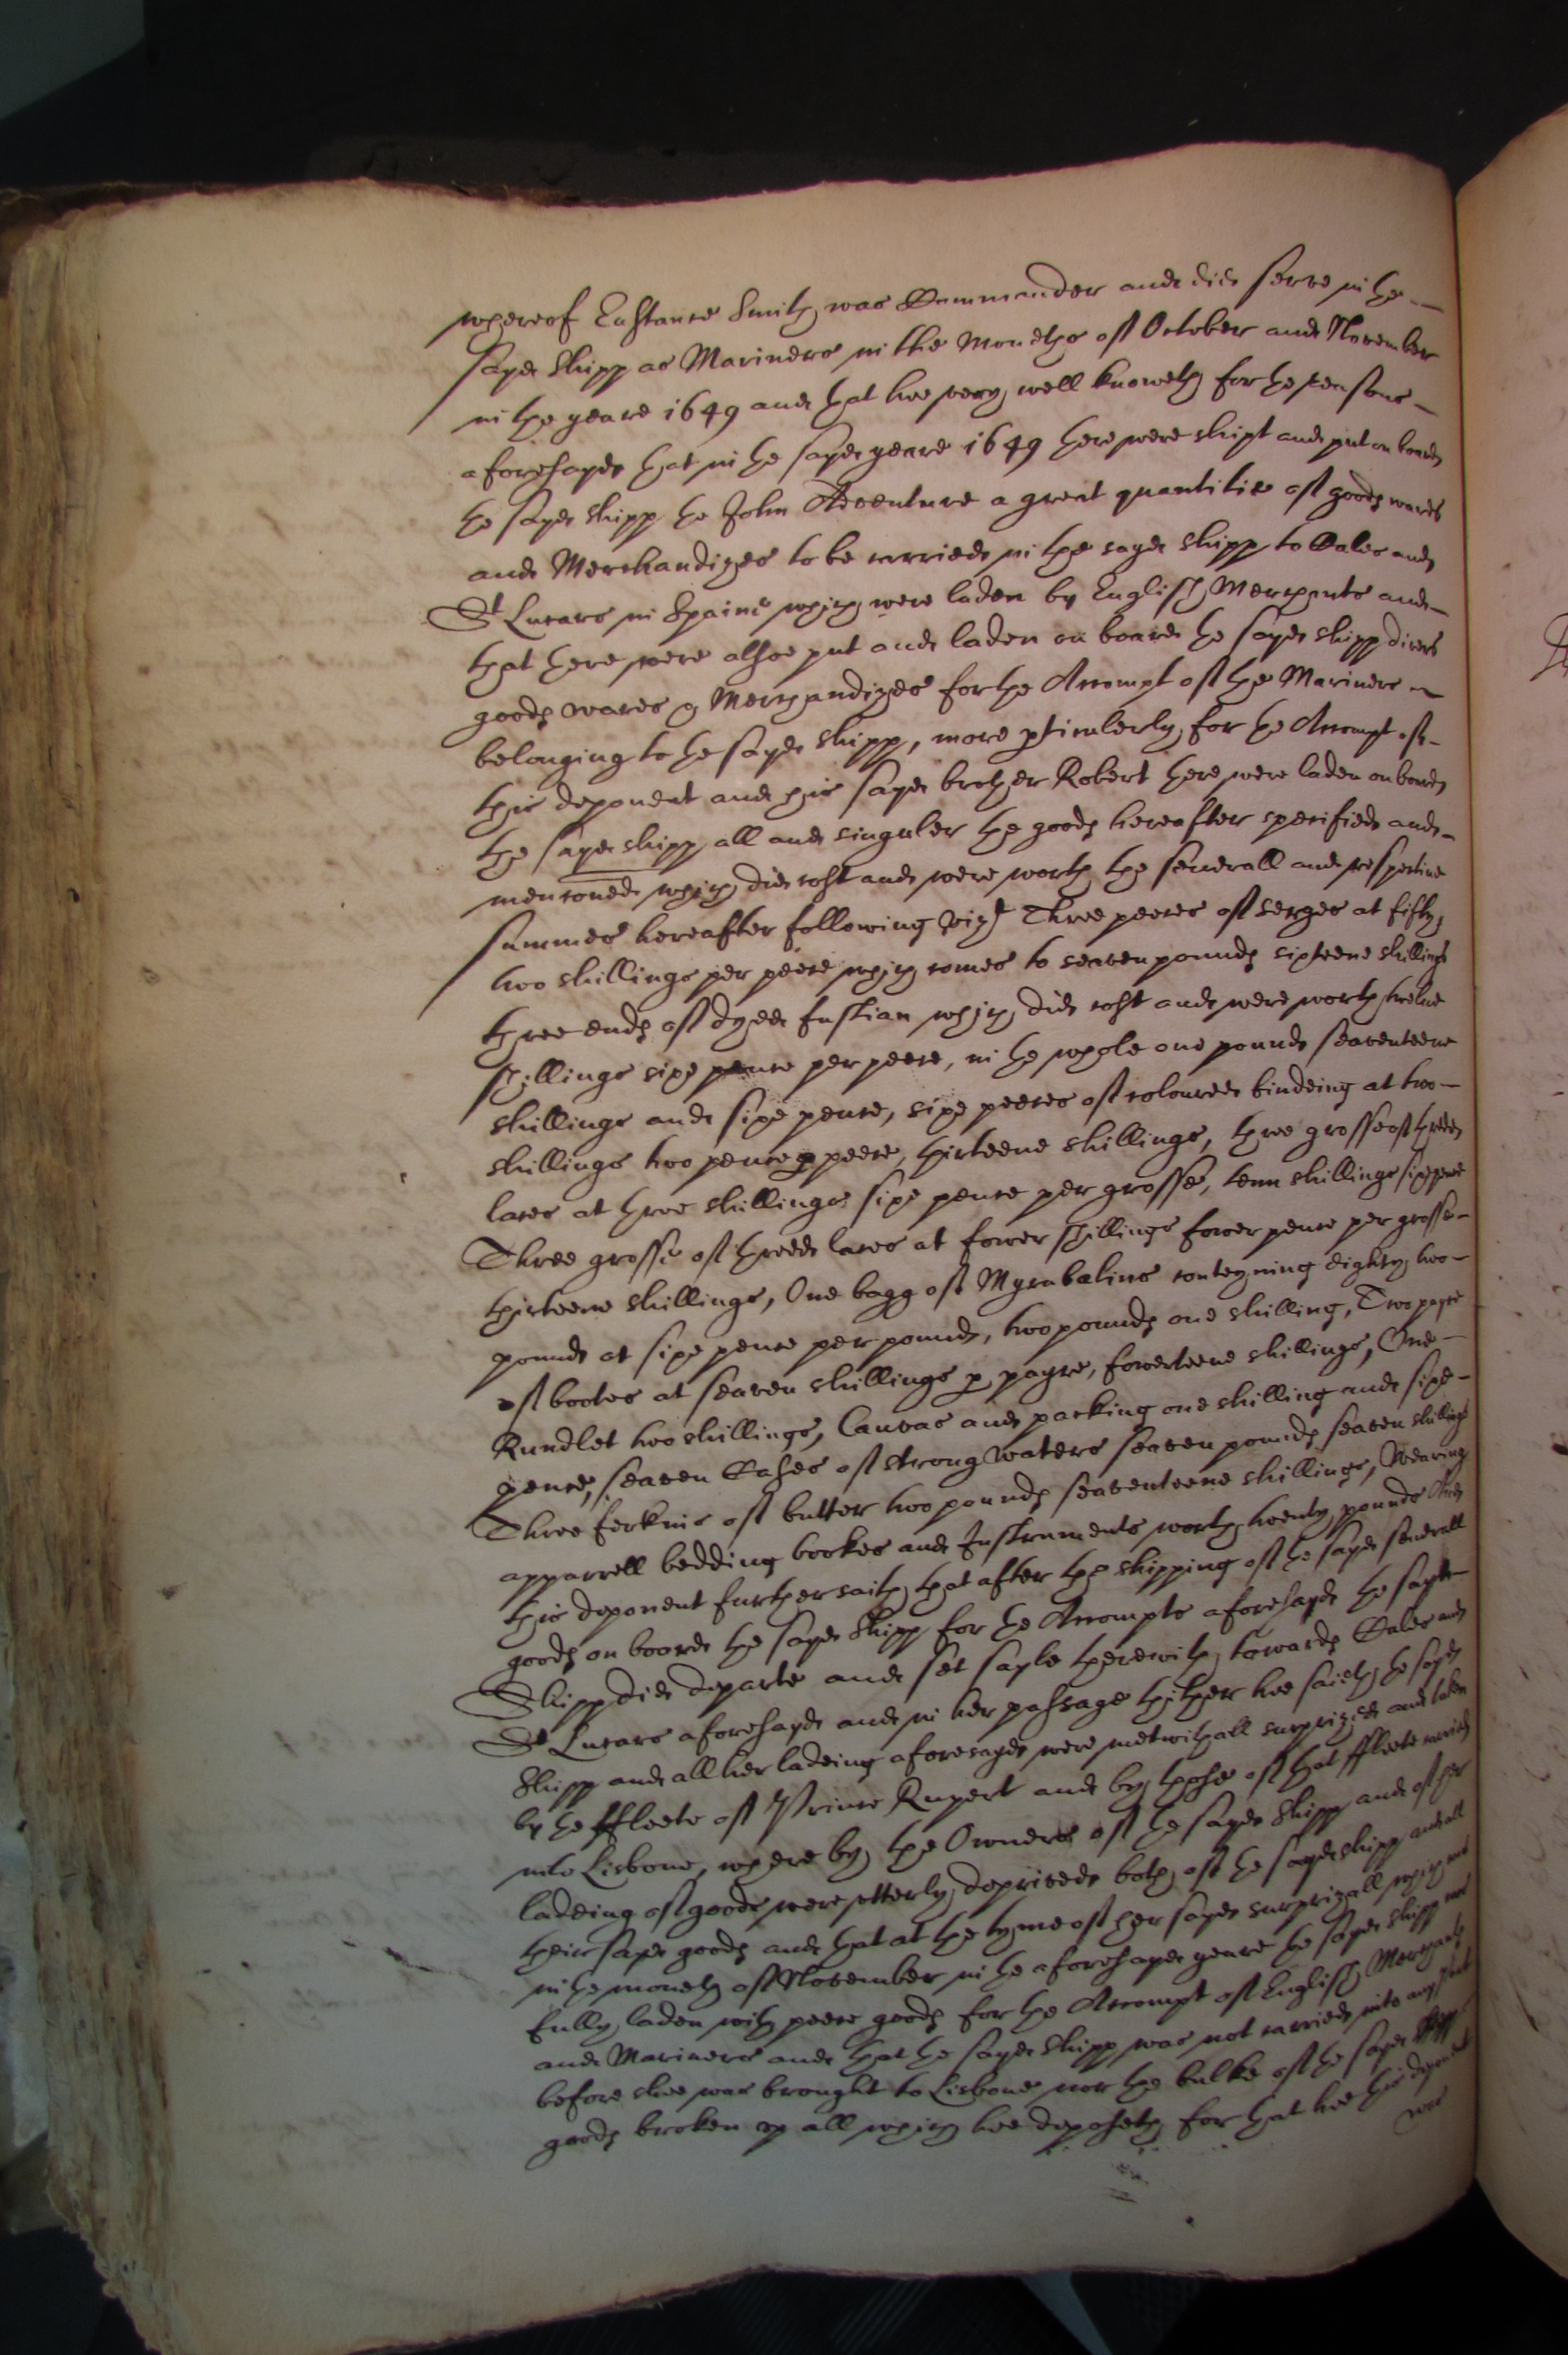 whereof Eustance Smith was Commander and did serve in the
sayd shipp as Mariners in the Moneths of October and November
in the yeare 1649 and that hee very well knoweth for the reasons
aforesayde that in the sayd yeare 1649 there were shipt and put on board
the sayd shipp the John Adventure a great quantitie of goods wares
and Merchandizes to be carried in the sayd shipp to Cales and
St Lucars in Spaine which were laden by English Merchants and
that there were alsoe put and laden on board the sayd shipp divers
goods wares & Merchandizes for the Accompt of the Mariners
belonging to the sayd shipp, more pticulerly for the Accompt of
this deponent and his sayd brother Robert there were laden on board
the sayd shipp all and singuler the goods hereafter specified and
mencioned which did cost and were worth the severall and respective
summes hereafter following vizt Three peeces of serges at fifty
two shillings per peece which comes to seaven pounds sixteene shillings
three ends of dyed fustian which did cost and were worth twelve
shillings sixe pence per peece, in the whole one pound seaventeene
shillings and sixe pence, sixe peeces of coloured bindeing at two
shillings two pence p peece, thirteene shillings, three grosse of threed
laces at three shillings sixe pence per grosse, tenn shillings sixe pence
Three grosse of threed laces at fower shillings fower pence per grosse
thirteene shillings, One bagg of Myrabalins conteyning eighty two
pounds at sixe pence per pound, two pounds one shilling, Two payre
of bootes at seaven shillings p payre, fowerteene shillings, One
Rundlet two shillings, Canvas and packing one shilling and sixe
pence, seaven Cases of strong Waters seaven pounds seaven shillings
Three ferkins of butter two pounds seaventeene shillings, Wearing
apparrell bedding bookes and Instruments worth twenty pounds And
this deponent further saith that after the shipping of the sayd severall
goods on boord the sayd Shipp for the Accompts aforesayd the sayd
Shipp did departe and set sayle therewith towards Cales and
St Lucars aforesayd and in her passage thither hee saieth the sayd
Shipp and all her ladeing aforesayd were met withall surprized and taken
by the ffleete of Prince Rupert and by those of that ffleete carried
into Lisbone, whereby the Owners of the sayd Shipp and of her
ladeing of goods were utterly deprived both of the sayd shipp and all
their sayd goods and that at the tyme of her sayd surprizall which was
in the moneth of November in the aforesayd yeare the sayd shipp was
fully laden with peece goods for the Accompt of English Merchants
and Mariners and that the sayd Shipp was not carried into any port
before shee was brought to Lisbone nor the bulke of the sayd shipp
goods broken up all which hee deposeth for that hee this deponent
was